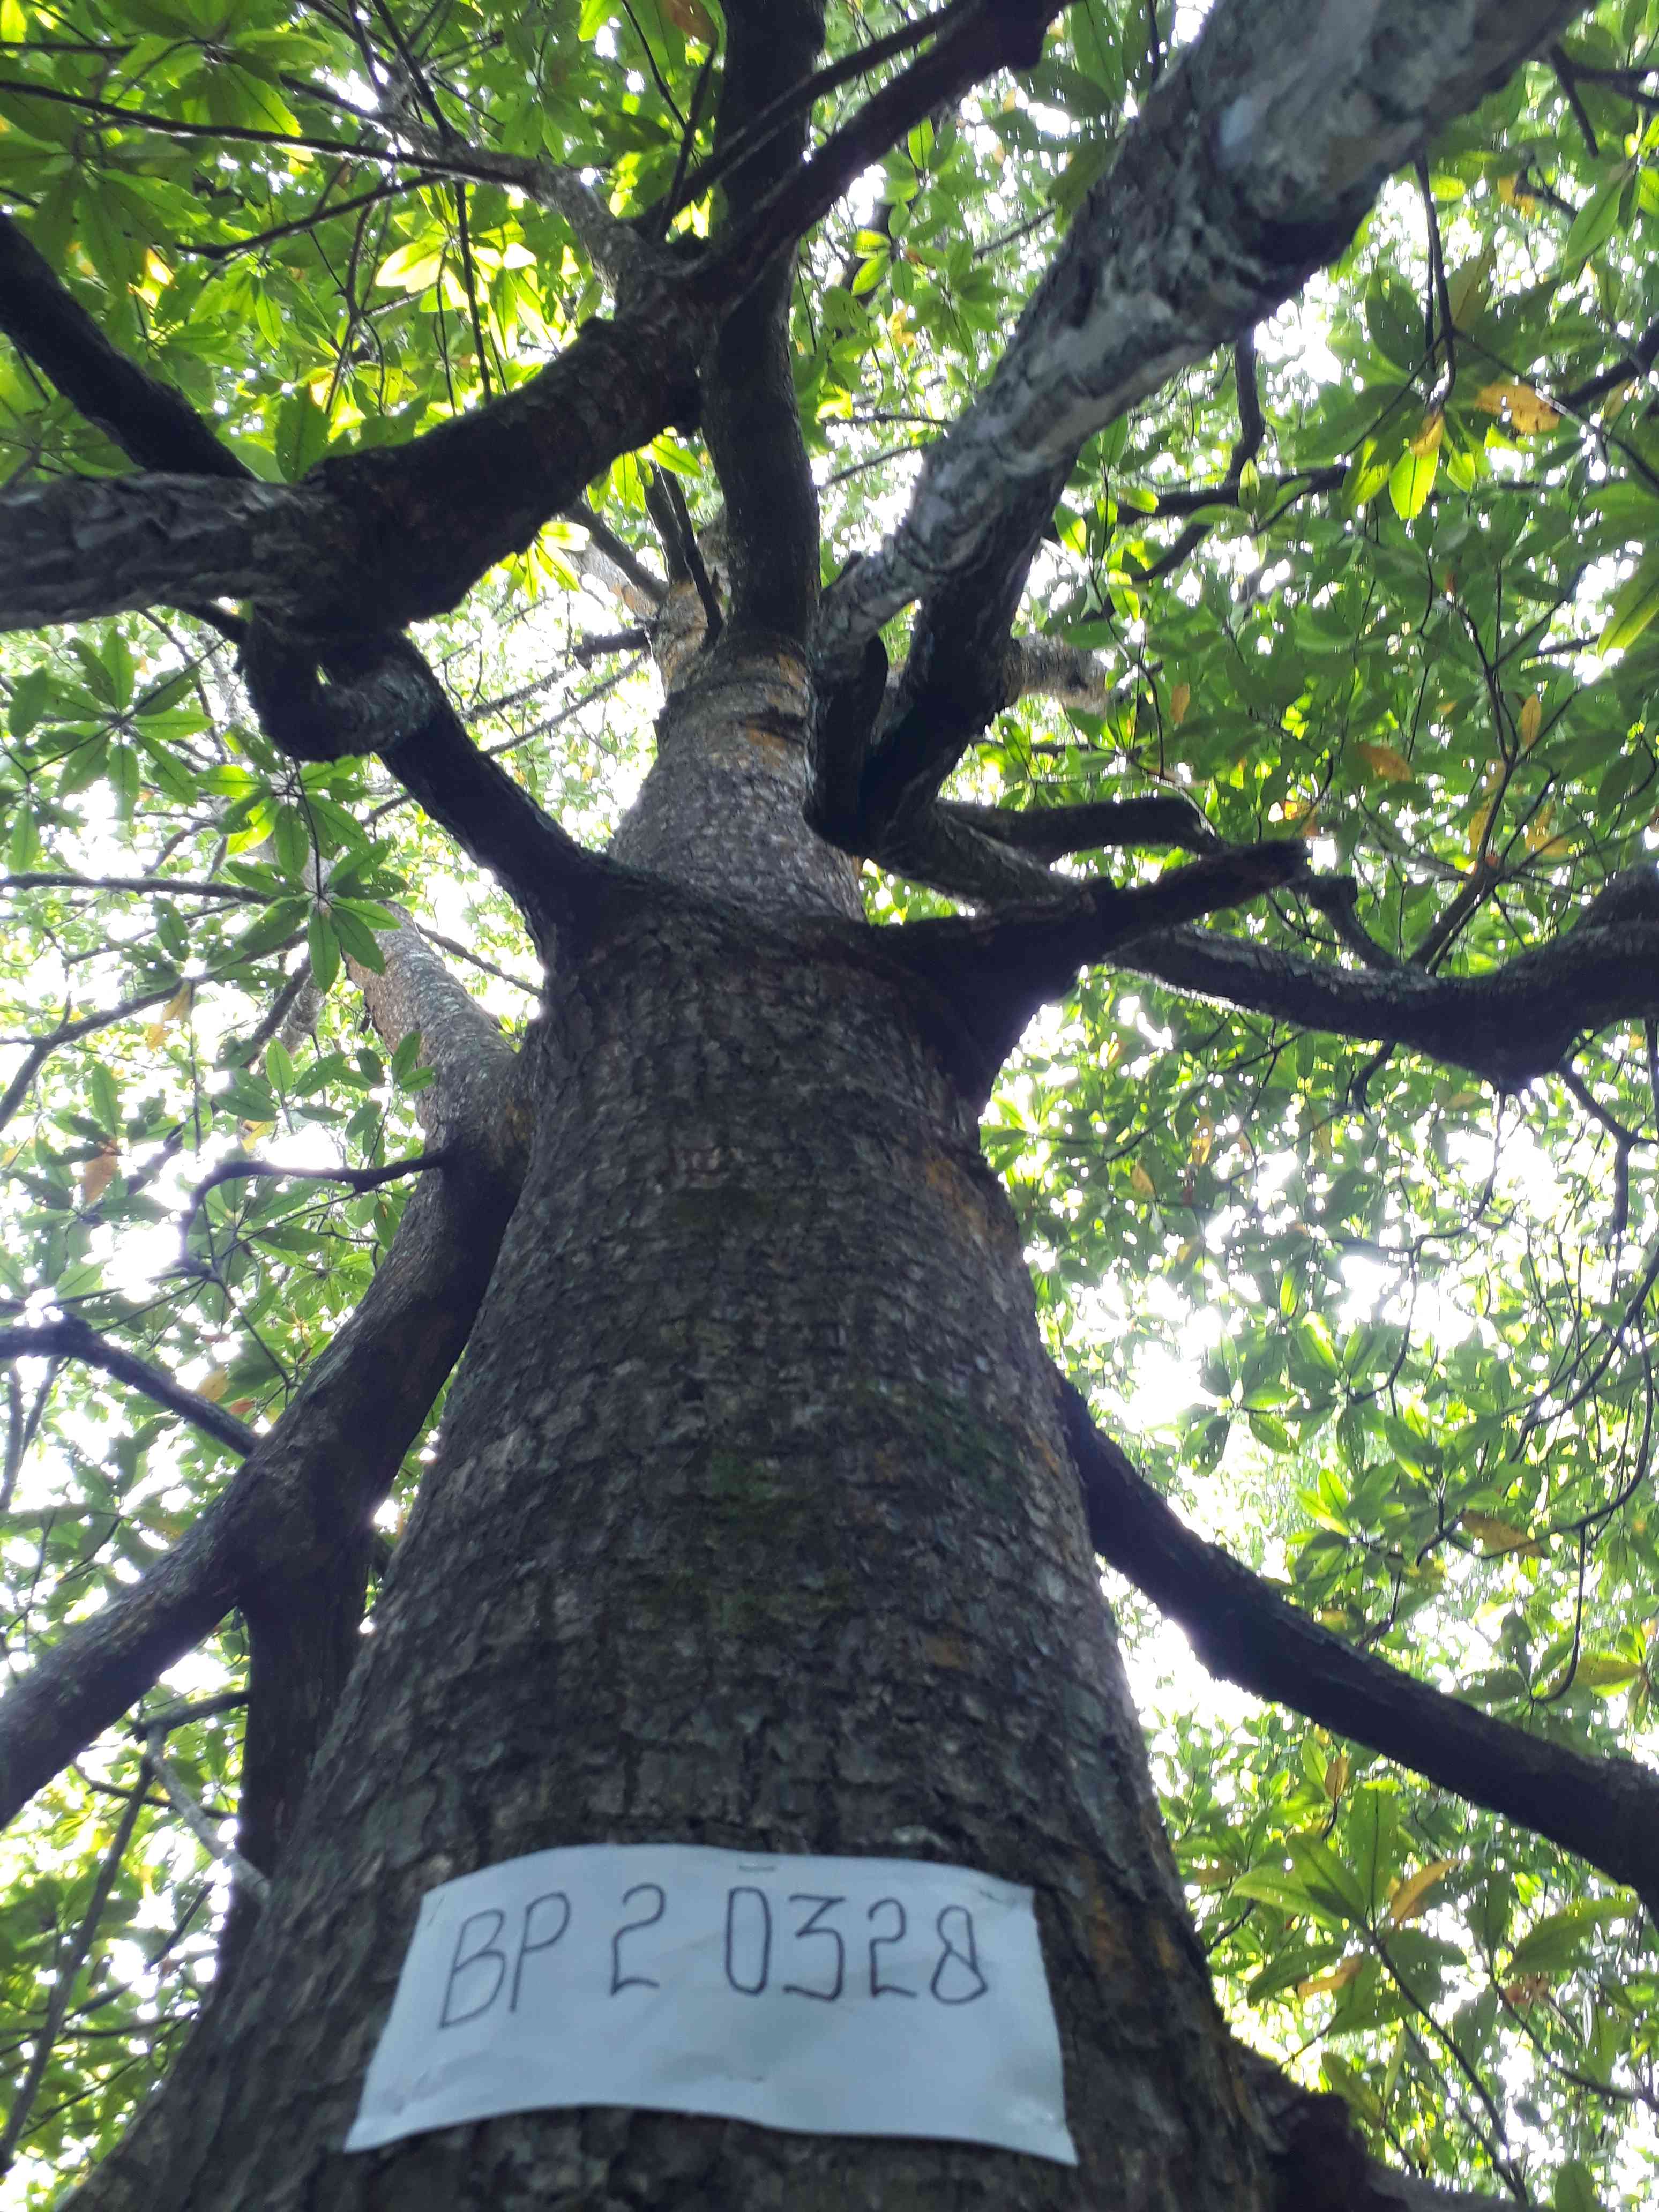 BP 2 0328